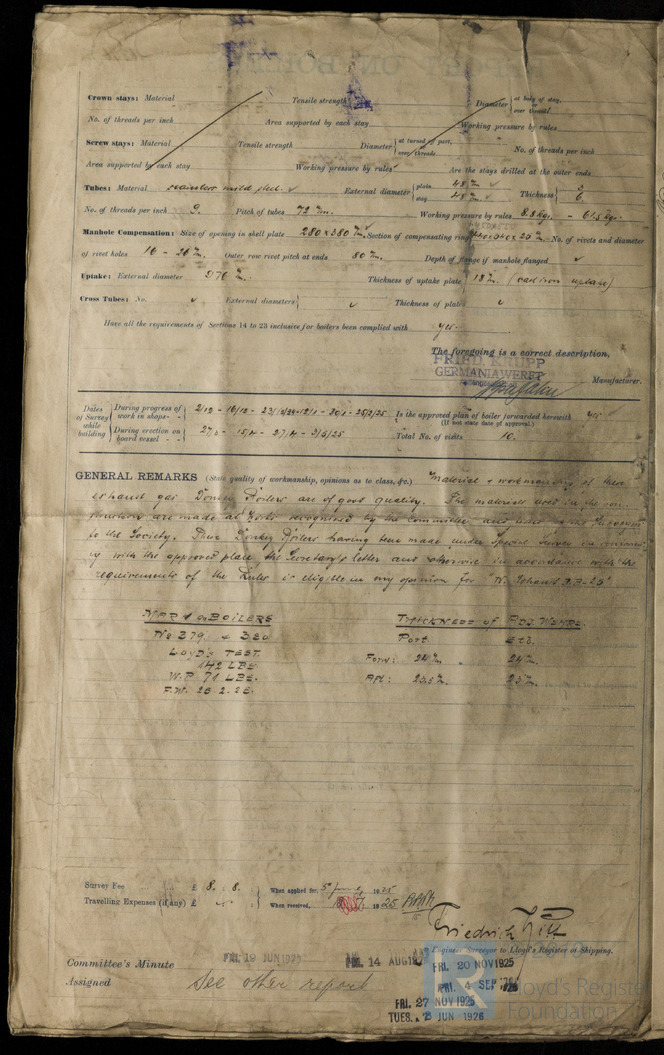 Crown stays: Material Tensile strength Diameter { at body of stay, or over threads
No. of threads per inch Area supported by each stay Working pressure by rules
Screw stays: Material Tensile strength Diameter { at turned off part, or over threads No. of threads per inch
Area supported by each stay Working pressure by rules Are the stays drilled at the outer ends
Tubes: Material seamless mild steel ✓ External diameter { plain 48 m/m ✓ stay 48 m/m ✓ Thickness { 3 6
No. of threads per inch 9. Pitch of tubes 72 m/m. Working pressure by rules 8.8 kgs. = 61.5 kgs.
Manhole Compensation: Size of opening in shell plate 280 x 380 m/m Section of compensating ring No. of rivets and diameter
of rivet holes 16 - 26 m/m. Outer row rivet pitch at ends 80 m/m. Depth of flange if manhole flanged ✓
Uptake: External diameter 976 m/m. Thickness of uptake plate 18 m/m (cast iron uptake)
Cross Tubes: No. ✓ External diameters { ✓ Thickness of plates ✓
Have all the requirements of Sections 14 to 23 inclusive for boilers been complied with yes.
The foregoing is a correct description,
FRIED. KRUPP
GERMANIAWERFT
Manufacturer.
Dates of Survey while building { During progress of work in shops - - 2/12 - 16/12 - 23/12/24 - 12/1 - 30/1 - 25/2/25 Is the approved plan of boiler forwarded herewith yes
(If not state date of approval.)
During erection on board vessel - - 15/4 - 27/4 - 3/5/25 Total No. of visits 10.
GENERAL REMARKS (State quality of workmanship, opinions as to class, &c.) Material & workmanship of these
exhaust gas Donkey Boilers are of good quality. The materials used in the con-
structions are made at Works recognised by the Committee and tested by the Surveyors
to the Society. These Donkey Boilers having been made under Special Survey in conformi-
ty with the approved plan, the Secretary's letter and otherwise in accordance with the
requirements of the Rules is eligible in my opinion for
MARK ON BOILERS
No 379 & 380
LOYD'S TEST
142 LBS
W.P. 71 LBS.
F.W. 25.2.25.
THICKNESS OF
Port. STB.
Forw: 24 m/m. 24 m/m.
Aft: 23.5 m/m. 23 m/m.
Survey Fee ... £ 8 : 8. When applied for, 5 June 1925
Travelling Expenses (if any) £ : When received, 1925
Friedrich
Engineer Surveyor to Lloyd's Register of Shipping.
Committee's Minute FRI. 19 JUN 1925 FRI. 14 AUG 1925 FRI. 20 NOV 1925
Assigned See other report FRI. 4 SEP 1925
FRI. 27 NOV 1925
TUES. JUN 1926
Lloyd's Register
Foundation